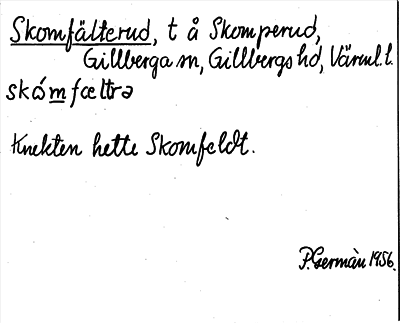 Skomfälterud, t å Skomperud,
Gillberga sn, Gillbergs hd, Värml. l.
skómfæltrə
Knekten hette Skomfeldt.
P. Germàn 1956.